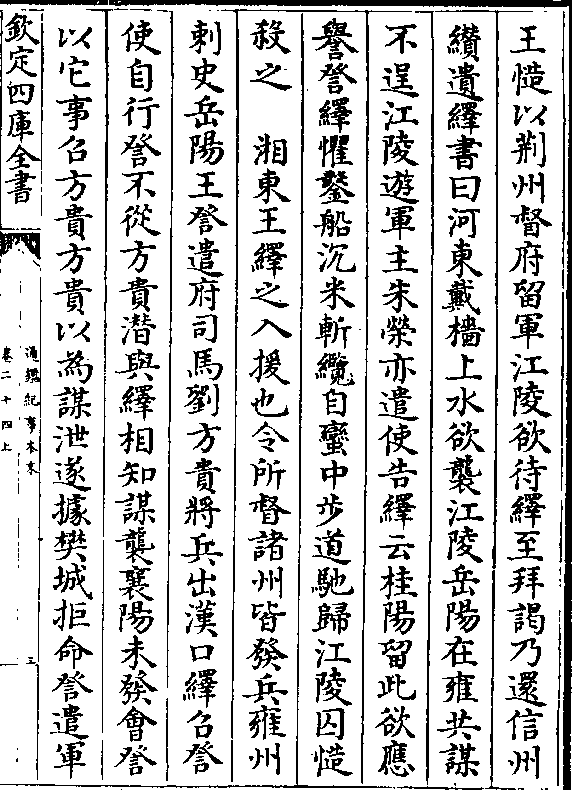 王慥以荆州督府留軍江陵欲待繹至拜謁乃還信州
纉遺繹書曰河東戴檣上水欲襲江陵岳陽在雍共謀
不逞江陵遊軍主朱榮亦遣使告繹云桂陽留此欲應
譽詧繹懼鑿船沉米斬纜自蠻中步道馳歸江陵囚慥
殺之　湘東王繹之入援也令所督諸州皆發兵雍州
刺史岳陽王詧遣府司馬劉方貴將兵出漢口繹召詧
使自行詧不從方貴潜與繹相知謀襲襄陽未發會詧
以它事召方貴方貴以為謀泄遂據樊城拒命詧遣軍
欽定四庫全書
通鑑紀事本末
卷二十四上
三